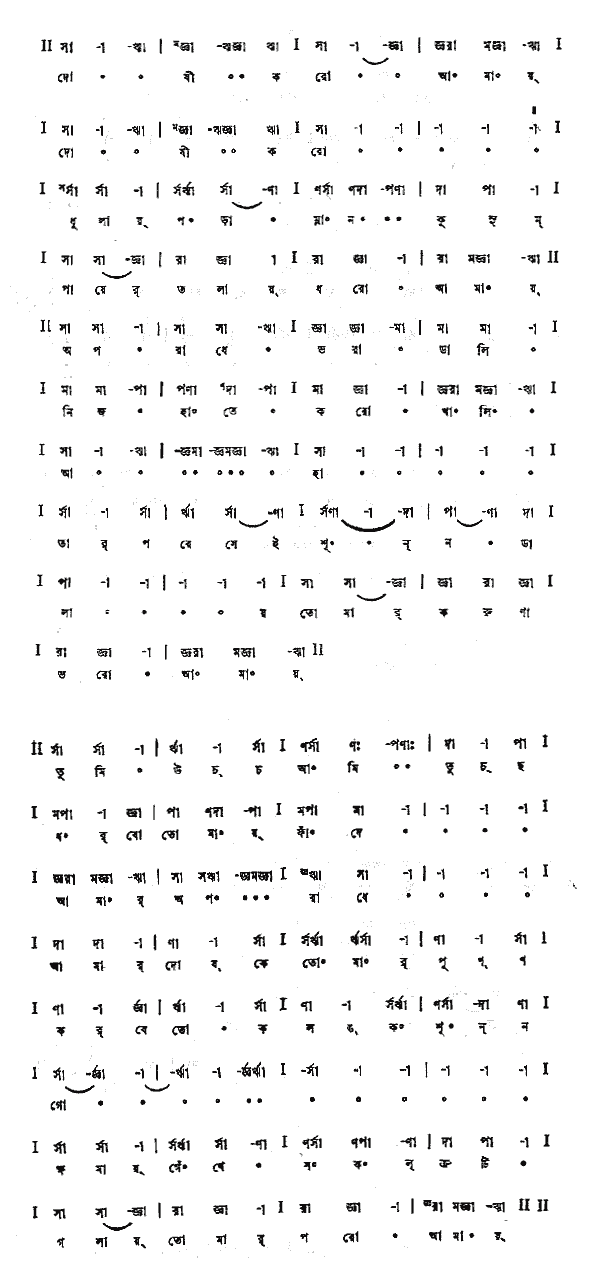 II সা -া -ঋা | ᵐজ্ঞা -ঋজ্ঞা ঋা I সা -া -জ্ঞা | জ্ঞরা মজ্ঞা -ঋা I
দো • • ষী •• ক রো • ০ আ• মা• য়্
I সা -া -ঋা | ᵐজ্ঞা -ঋজ্ঞা ঋা I সা -া -া | -া -া -া I
দো • ০ ষী ০০ ক রো • • • • •
I র্সা র্সা -া | র্সর্ঋা র্সা -ণা I ণর্সা ণদা -পণা | দা পা -া I
ধু লা য়্ প• ড়া • ম্লা• ন• •• কু সু ম্
I সা সা -জ্ঞা | রা জ্ঞা া I রা জ্ঞা -া | রা মজ্ঞা -ঋা II
পা য়ে র্ ত লা য়্ ধ রো ০ আ মা• য়্
II সা সা -া | সা সা -ঋা I জ্ঞা জ্ঞা -মা | মা মা -া I
অ প • রা ধে • ভ রা • ডা লি ০
I মা মা -পা | পণা ণদা -পা I মা জ্ঞা -া | জ্ঞরা মজ্ঞা -ঋা I
নি জ • হা• তে • ক রো • খা• লি• •
I সা -া -ঋা | -জ্ঞমা -জ্ঞমজ্ঞা -ঋা I সা -া -া | -া -া -া I
আ • • •• ••• • হা • • • • •
I র্সা -া র্সা | র্ঋা র্সা -ণা I র্সণা -া -দা | পা -ণা দা I
তা র্ প রে সে ই শূ• • ন্ ন • ডা
I পা -া -া | -া -া -া I সা সা -জ্ঞা | জ্ঞা রা জ্ঞা I
লা • • • • য় তো মা র্ ক রু ণা
I রা জ্ঞা -া | জ্ঞরা মজ্ঞা -ঋা II
ভ রো • আ• মা• য়্
II র্সা র্সা -া | র্ঋা -া র্সা I ণর্সা ণঃ -পণাঃ | দা -া পা I
তু মি • উ চ্ চ আ• মি •• তু চ্ ছ
I মপা -া জ্ঞা | পা ণদা -পা I মপা মা -া | -া -া -া I
ধ• র্ বো তো মা• য়্ ফাঁ• দে • • • •
I জ্ঞরা মজ্ঞা -ঋা | সা সঋা -জ্ঞমজ্ঞা I ঋা সা -া | -া -া -া I
আ মা• র্ অ প• ••• রা ধে • • • •
I দা দা -া | ণা -া র্সা I র্সর্ঋা র্ঋর্সা -া | ণা -া র্সা I
আ মা র্ দো ষ্ কে তো• মা• র্ পু ণ্ ণ
I ণা -া র্জ্ঞা | র্ঋা -া র্সা I ণা -া র্সর্ঋা | ণর্সা -দা ণা I
ক র্ বে তো • ক ল ঙ্ ক• শূ• ন্ ন
I র্সা -র্জ্ঞা -া | -র্ঋা -া -র্জ্ঞর্ঋা I -র্সা -া -া | -া -া -া I
গো • • • • •• • • • ০ • •
I র্সা র্সা -া | র্সর্ঋা র্সা -ণা I ণর্সা ণপা -ণা | দা পা -া I
ক্ষ মা য়্ গেঁ• থে • স• ক• ল্ ত্রু টি •
I সা সা -জ্ঞা | রা জ্ঞা -া I রা জ্ঞা -া | রা মজ্ঞা -ঋা II II
গ লা য়্ তো মা র্ প রো • আ মা• য়্